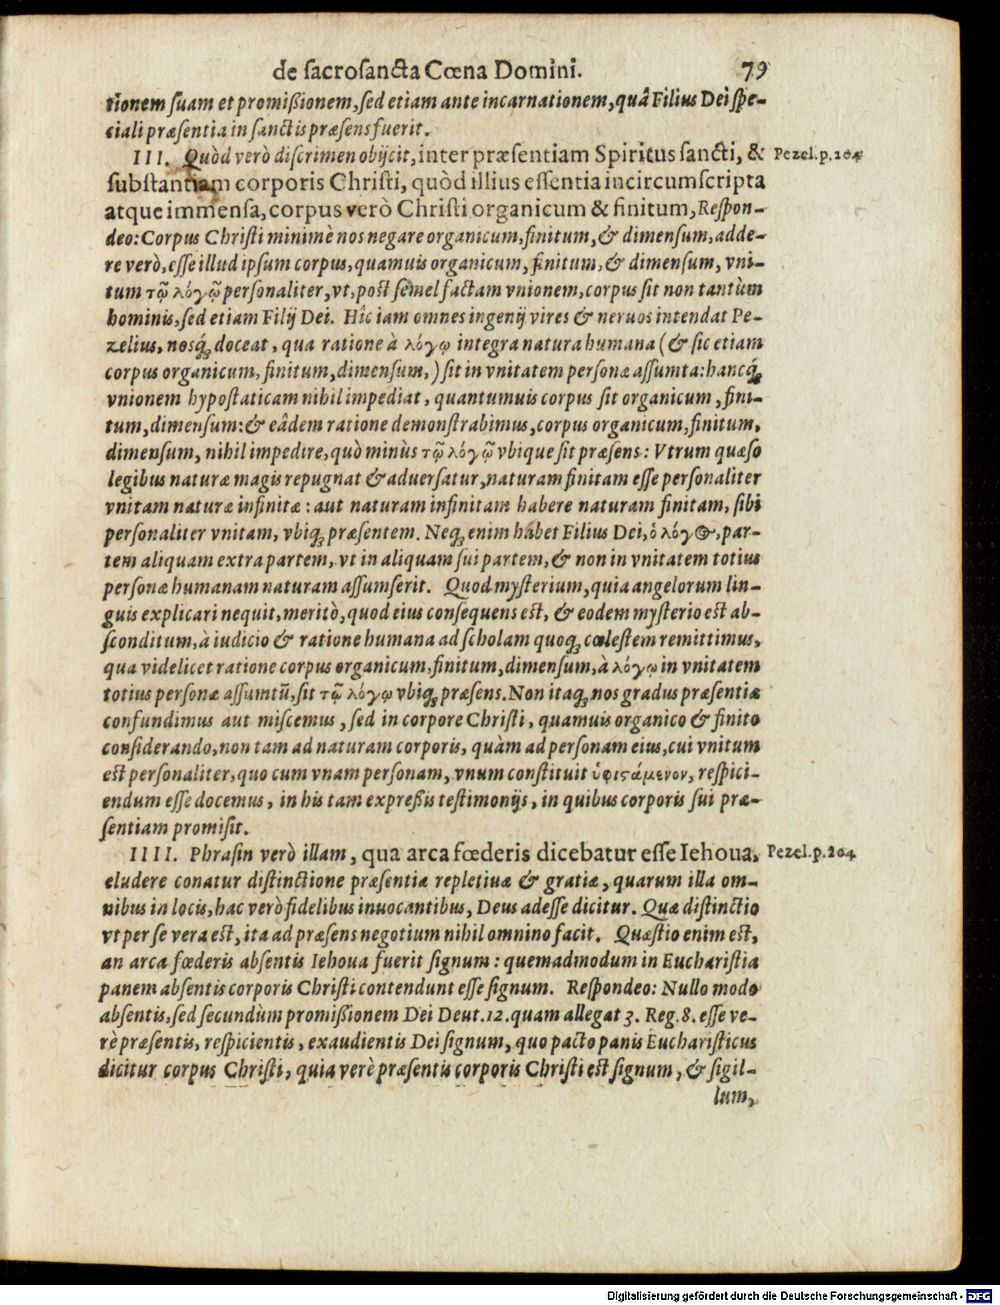 de sacrosancta Cœna Domini. 79
tionem suam et promißionem, sed etiam ante incarnationem, quâ Filius Dei spe-
ciali præsentia in sanctis præsens fuerit.
III. Quòd verò discrimen obijcit, inter præsentiam Spiritus sancti, & Pezel. p. 204
substantiam corporis Christi, quòd illius essentia incircumscripta
atque immensa, corpus verò Christi organicum & finitum, Respon-
deo: Corpus Christi minimè nos negare organicum, finitum, & dimensum, adde-
re verò, esse illud ipsum corpus, quamuis organicum, finitum, & dimensum, vni-
tum τῷ λόγῳ personaliter, vt, post semel factam vnionem, corpus sit non tantùm
hominis, sed etiam Filij Dei. Hîc iam omnes ingenij vires & neruos intendat Pe-
zelius, nosq́; doceat, qua ratione à λόγῳ integra natura humana (& sic etiam
corpus organicum, finitum, dimensum,) sit in vnitatem personæ assumta: hancq́;
vnionem hypostaticam nihil impediat, quantumuis corpus sit organicum, fini-
tum, dimensum: & eâdem ratione demonstrabimus, corpus organicum, finitum,
dimensum, nihil impedire, quò minùs τῷ λόγῳ vbique sit præsens: Vtrum quæso
legibus naturæ magis repugnat & aduersatur, naturam finitam esse personaliter
vnitam naturæ infinitæ: aut naturam infinitam habere naturam finitam, sibi
personaliter vnitam, vbiq; præsentem. Neq; enim habet Filius Dei, ὁ λόγος, par-
tem aliquam extra partem, vt in aliquam sui partem, & non in vnitatem totius
personæ humanam naturam assumserit. Quod mysterium, quia angelorum lin-
guis explicari nequit, meritò, quod eius consequens est, & eodem mysterio est ab-
sconditum, à iudicio & ratione humana ad scholam quoq; cœlestem remittimus,
qua videlicet ratione corpus organicum, finitum, dimensum, à λόγῳ in vnitatem
totius personæ assumtũ, sit τῷ λόγῳ vbiq; præsens. Non itaq; nos gradus præsentiæ
confundimus aut miscemus, sed in corpore Christi, quamuis organico & finito
considerando, non tam ad naturam corporis, quàm ad personam eius, cui vnitum
est personaliter, quo cum vnam personam, vnum constituit ὑφιστάμενον, respici-
endum esse docemus, in his tam expreßis testimonijs, in quibus corporis sui præ-
sentiam promisit.
IIII. Phrasin verò illam, qua arca fœderis dicebatur esse Iehoua, Pezel. p. 204
eludere conatur distinctione præsentiæ repletiuæ & gratiæ, quarum illa om-
nibus in locis, hac verò fidelibus inuocantibus, Deus adesse dicitur. Quæ distinctio
vt per se vera est, ita ad præsens negotium nihil omnino facit. Quæstio enim est,
an arca fœderis absentis Iehoua fuerit signum: quemadmodum in Eucharistia
panem absentis corporis Christi contendunt esse signum. Respondeo: Nullo modo
absentis, sed secundùm promißionem Dei Deut. 12. quam allegat 3. Reg. 8. esse ve-
rè præsentis, respicientis, exaudientis Dei signum, quo pacto panis Eucharisticus
dicitur corpus Christi, quia verè præsentis corporis Christi est signum, & sigil-
lum,
Digitalisierung gefördert durch die Deutsche Forschungsgemeinschaft - DFG